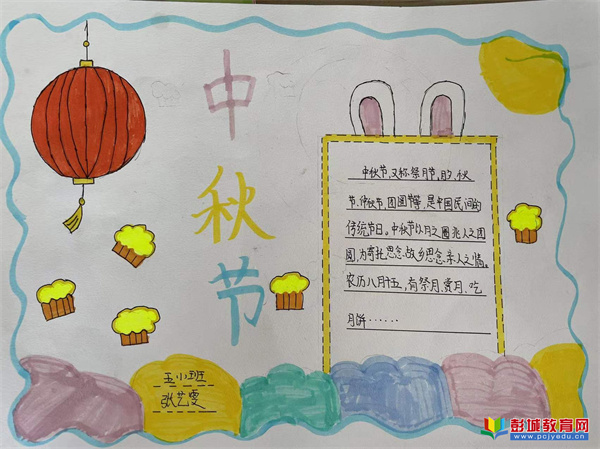 中
秋
节
中秋节,又称祭月节、月夕、秋
节、仲秋节、团圆节等,是中国民间的
传统节日。中秋节以月之圆兆人之团
圆,为寄托思念故乡思念亲人之情。
农历八月十五,有祭月、赏月、吃
月饼……
小班
张艺雯
彭城教育网
www.pcjyedu.cn